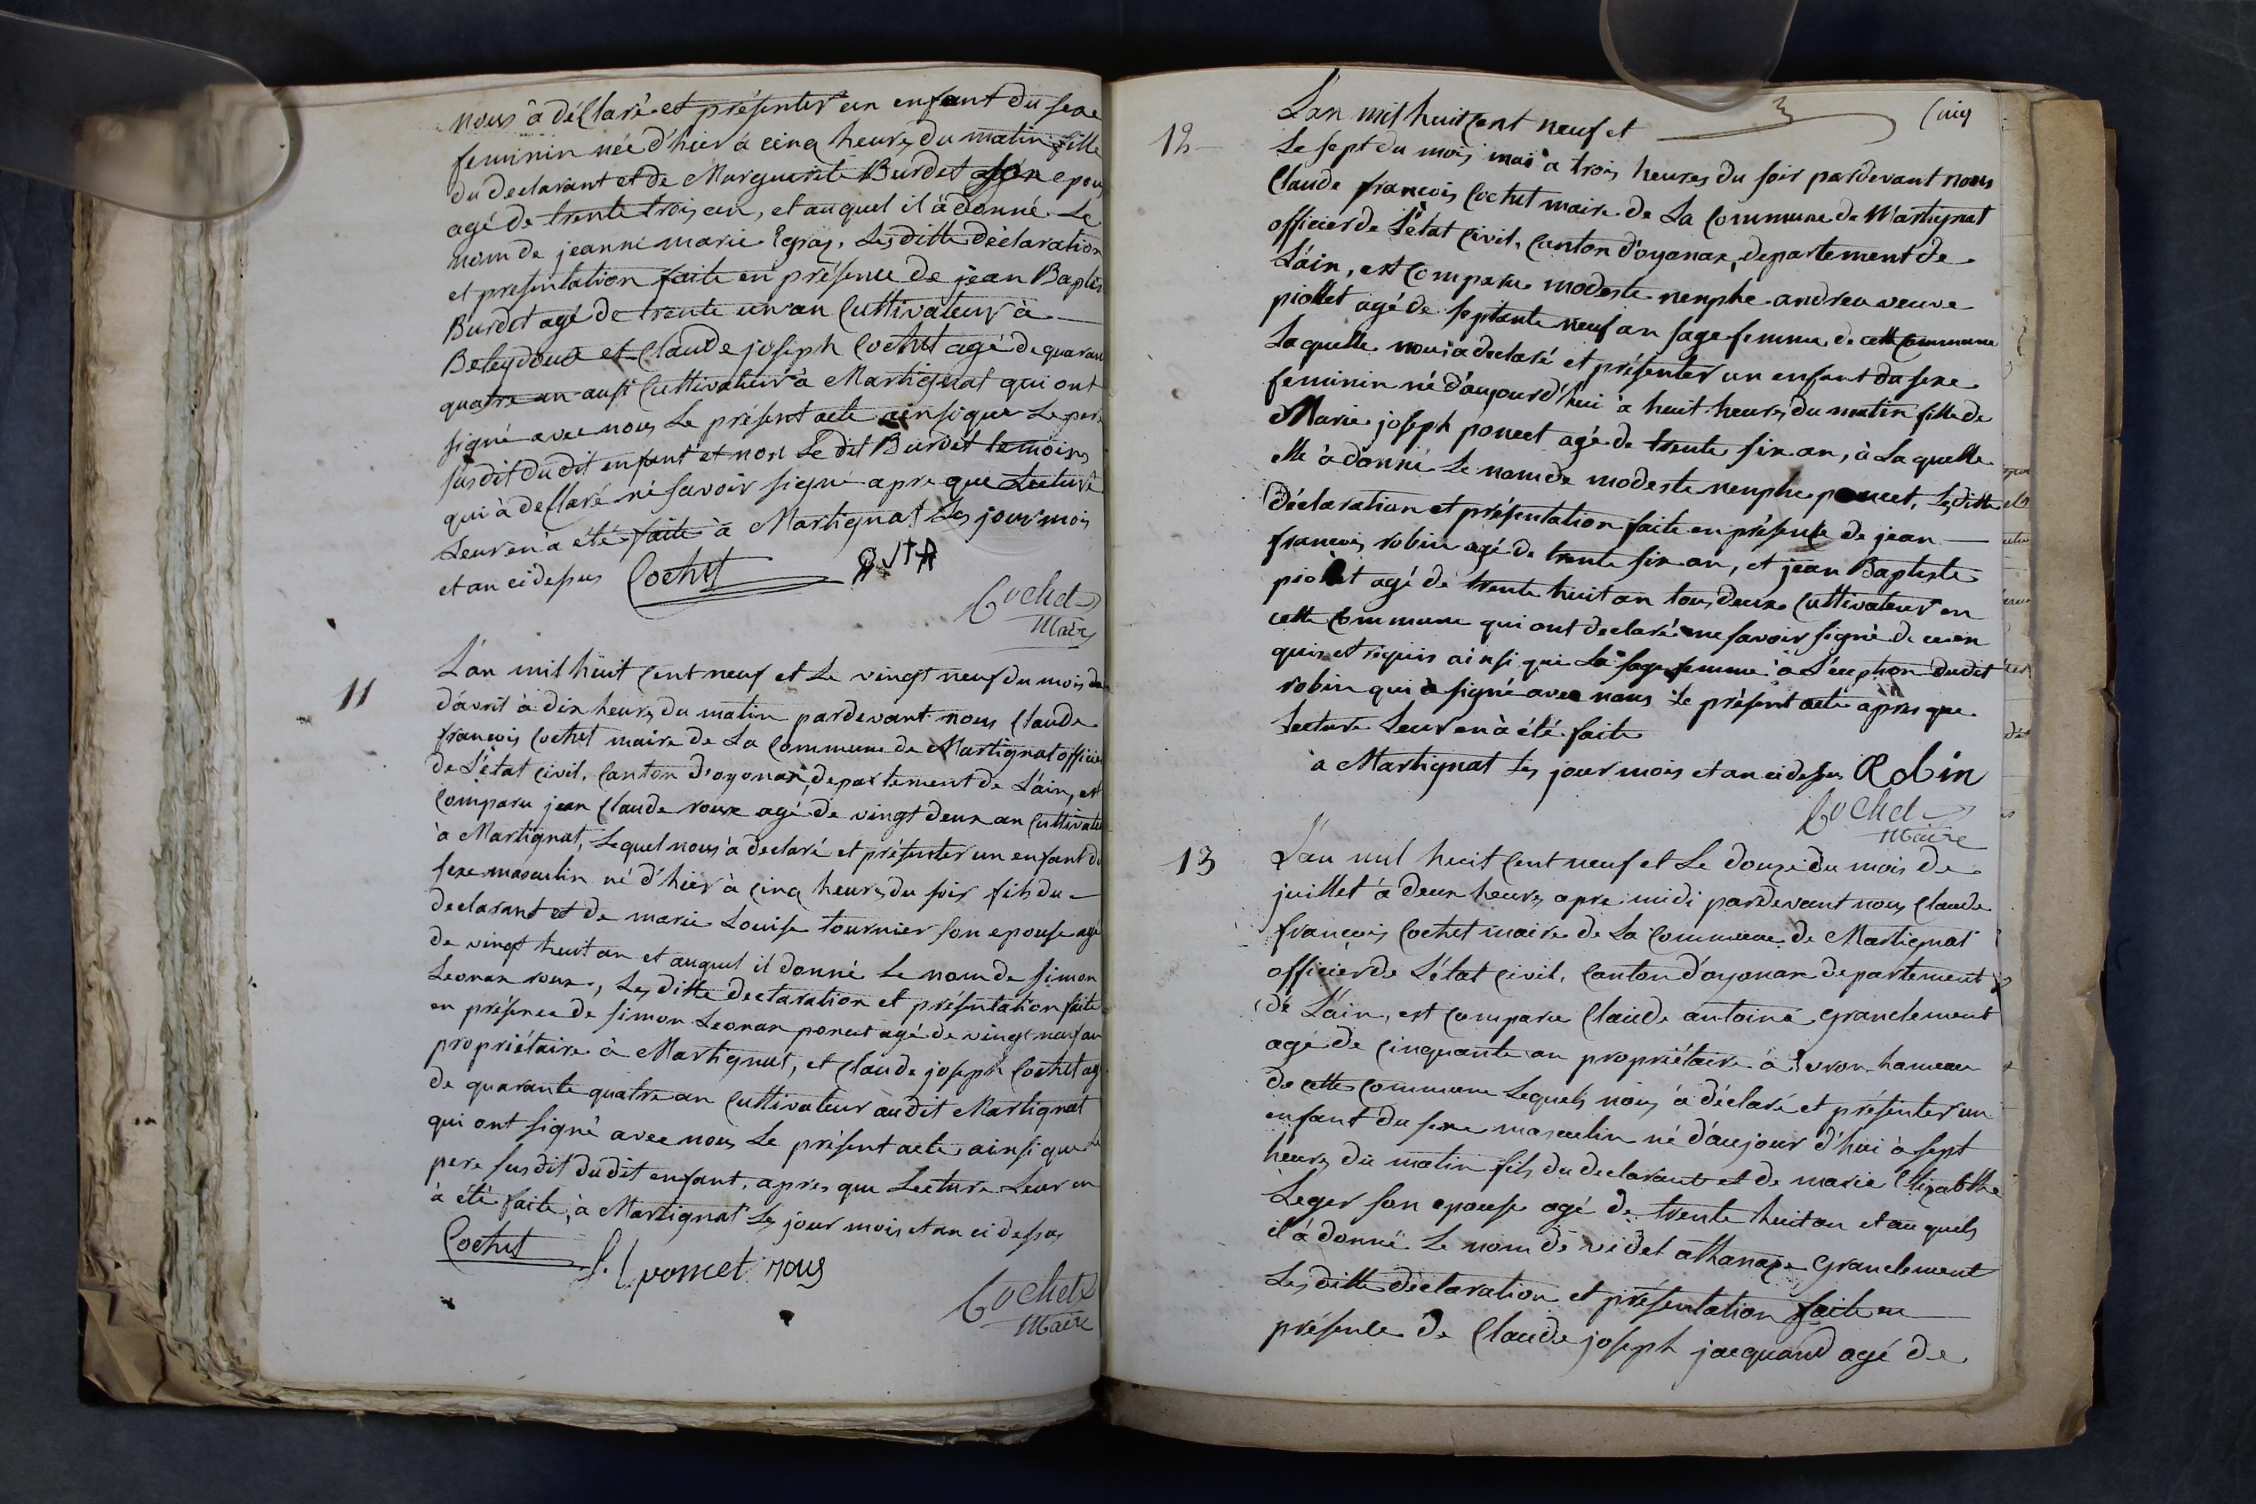 nous à déClaré et présenter un enfant du sexe
feminin née d'hier à cinq heures du matin fille
du declarant et de Marguerite Burdet son epou
agé de trente trois an, et auquel il à donné Le
nom de jeanne marie gras, Les ditte déclaration
et presentation faite en présence de jean Baptis
Burdet agé de trente un an Cultivateur à
Beleydoux et Claude joseph Cochet agé de quaran
quatre an ausi Cultivateur à Martignat qui ont
signé avec nous Le présent acte ainsi que Le per
susdit du dit enfant et non Le dit Burdet temoins
qui à declaré ne savoir signé apre que Lecture
Leur en a été faite à Martignat Les jour mois
et an ci desus Cochet
Cochet
Maire
11
L'an mil huit Cent neuf et Le vingt neuf du mois
d'avril à dix heures du matin pardevant nous Claude
françois Cochet maire de La Commune de Martignat officier
de L'état Civil, Canton d'oyonax, departement de L'ain, est
Comparu jean Claude roux agé de vingt deux an Cultivate
à Martignat, Lequel nous à declaré et présenter un enfant du
sexe masculin né d'hier à cinq heures du soir fils du
declarant et de marie Louise tournier son epouse agé
de vingt huit an et auquel il donné Le nom de simon
Leonar roux, Les ditte declaration et présentation faite
en présence de simon Leonar poncet agé de vingt neuf an
propriétaire à Martignat, et Claude joseph Cochet ag
de quarante quatre an Cultivateur audit Martignat
qui ont signé avec nous Le présent acte ainsi que Le
pere susdit dudit enfant, apres que Lecture Leur en
à été faite, à Martignat Les jour mois et an ci desus
Cochet S. L poncet roux
Cochet
Maire
Cinq
12
L'an mil huit Cent neuf et
Le sept du mois mai à trois heures du soir pardevant nous
Claude françois Cochet maire de La Commune de Martignat
officier de L'état Civil, Canton d'oyonax, departement de
L'ain, est Comparu modeste nenphe andrea veuve
piollet agé de septante neuf an sage femme de cette Commune
Laquelle nous a declaré et présenter un enfant du sexe
feminin né d'aujourd'hui à huit heures du matin fille de
Marie joseph poncet agé de trente six an, à Laquelle
elle à donné Le nom de modeste nenphe poncet, Les ditte
déclaration et présentation faite en présence de jean
françois robin agé de trente six an, et jean Baptiste
piollet agé de trente huit an tous deux Cultivateur en
cette Commune qui ont declaré ne savoir signé de ce en
quis et riquis ainsi que La sage femme à L'éception dudit
robin qui à signé avec nous Le présent acte apres que
Lecture Leur en à été faite
à Martignat Les jour mois et an ci desus Robin
Cochet
Maire
13
L'an mil huit Cent neuf et Le douze du mois de
juillet à deux heures apre midi pardevant nous Claude
françois Cochet maire de La Commune de Martignat
officier de L'état Civil, Canton d'oyonax departement
de L'ain, est Comparu Claude antoine grandement
agé de Cinquante an propriétaire à Evron hameau
de cette Commune Lequels nous à déclaré et présenter un
enfant du sexe masculin né d'aujourd'hui à sept
heures du matin fils du declarant et de marie Elizabthe
Leger son epouse agé de trente huit an et au quels
il à donné Le nom de videl athanaze grandement
Les ditte declaration et présentation faite en
présence de Claude joseph jacquand agé de